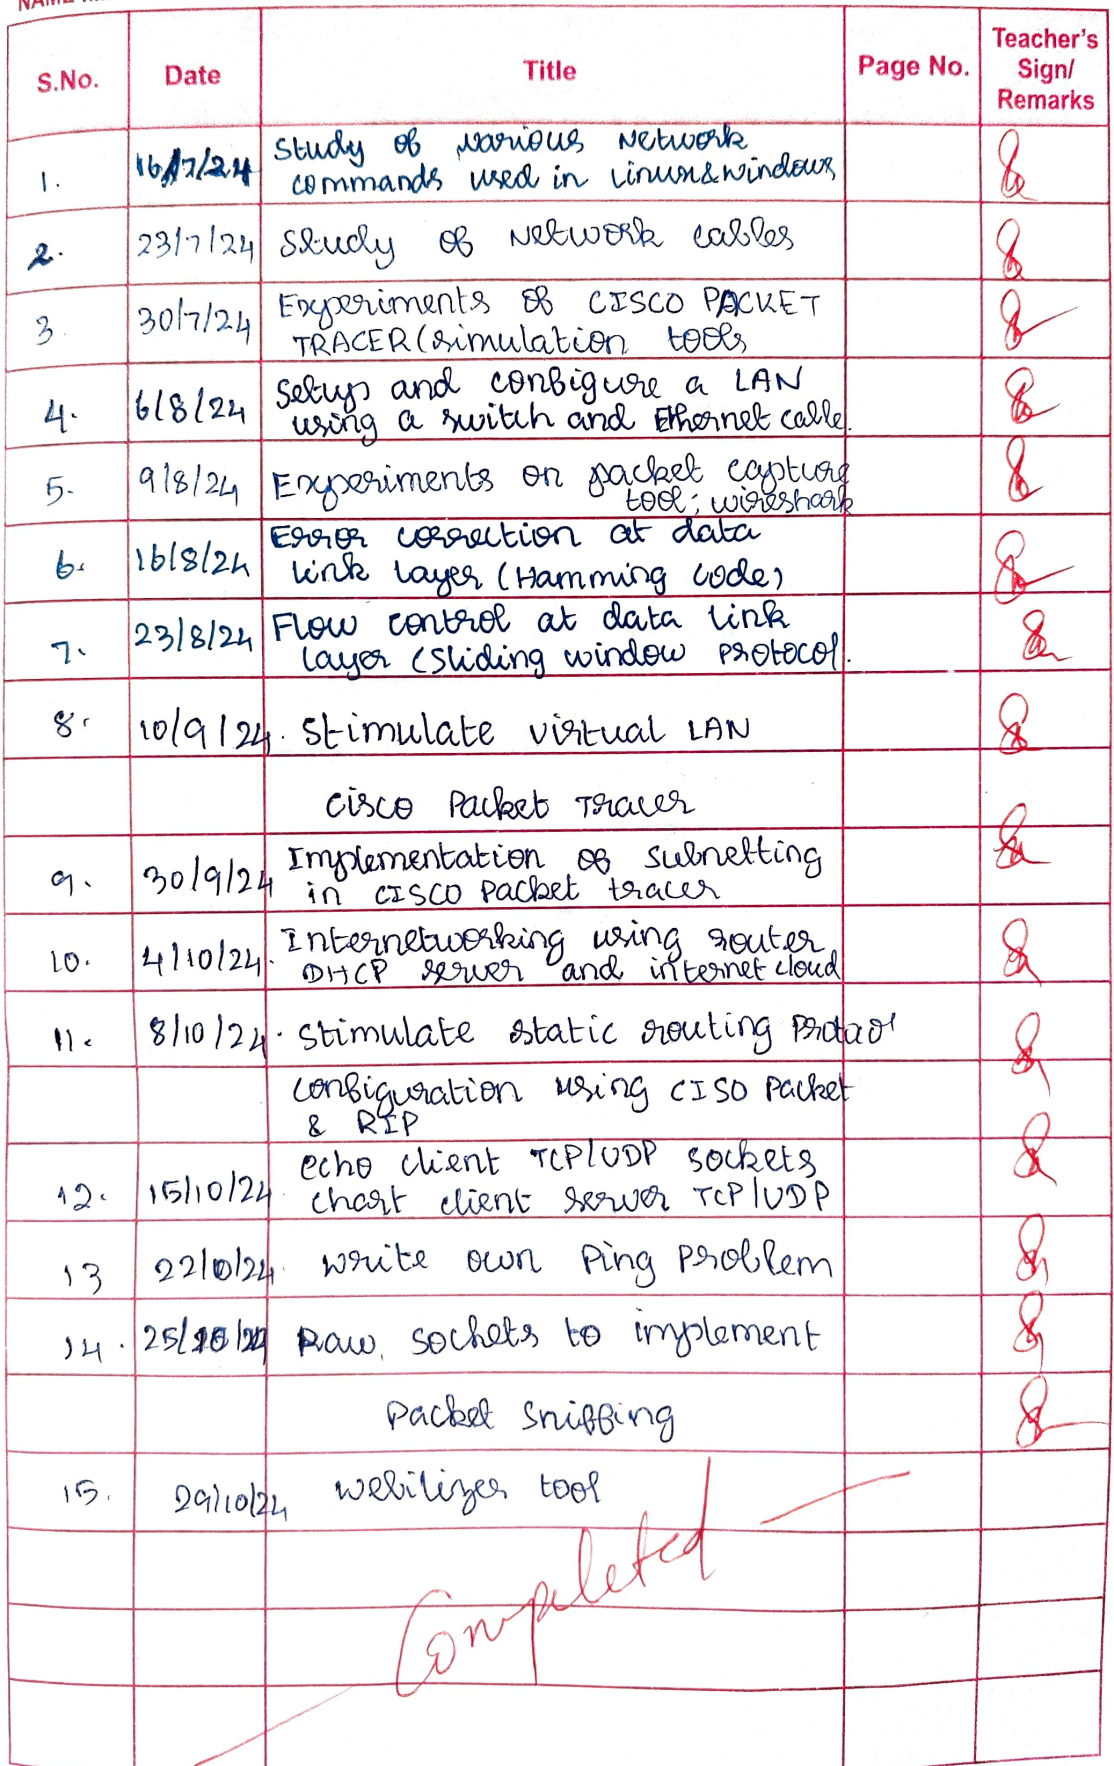 S.No. Date Title Page No. Teacher's Sign/ Remarks
1. 16/7/24 Study of various Network
commands used in Linux&windows
2. 23/7/24 Study of Network cables
3. 30/7/24 Experiments of CISCO PACKET
TRACER(simulation tools
4. 6/8/24 Setup and configure a LAN
using a switch and Ethernet cable.
5. 9/8/24 Experiments on packet capture
tool; wireshark
6. 16/8/24 Error correction at data
link layer (Hamming code)
7. 23/8/24 Flow control at data link
layer (Sliding window protocol.
8. 10/9/24. Stimulate virtual LAN
cisco Packet Tracer
9. 30/9/24 Implementation of subnetting
in CISCO Packet tracer
10. 4/10/24. Internetworking using router,
DHCP server and internet cloud
11. 8/10/24. Stimulate static routing
configuration using CISO Packet
& RIP
12. 15/10/24. echo client TCP/UDP sockets
chart client server TCP/UDP
13 22/10/24. write own Ping Problem
14. 25/10/24 Raw, sockets to implement
Packet Sniffing
15. 29/10/24 webilizer tool
Completed